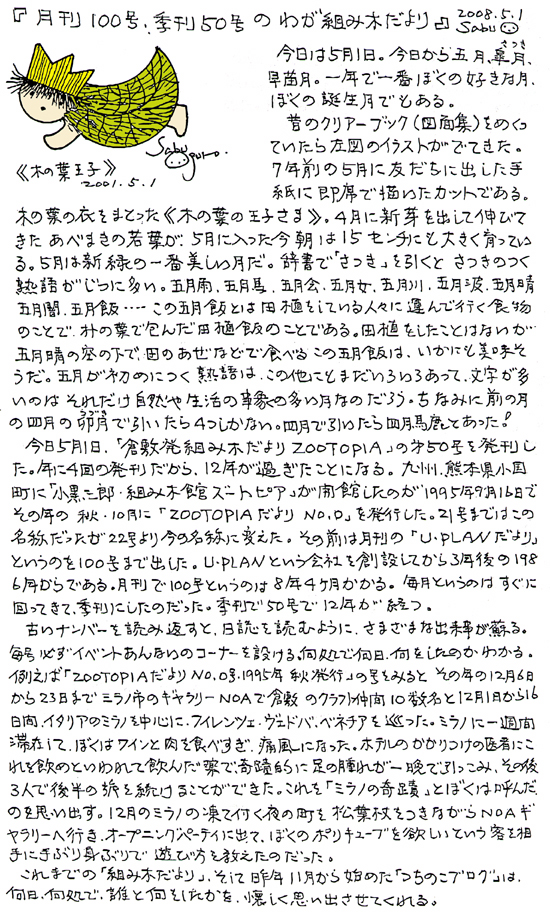 『月刊100号、季刊50号のわが組み木だより』 2008.5.1 Sabu
今日は5月1日。今日から五月、皐月(さつき)、
早苗月。一年で一番ぼくの好きな月、
ぼくの誕生月でもある。
昔のクリアーブック(図面集)をめくっ
ていたら左図のイラストがでてきた。
7年前の5月に友だちに出した手
紙に即席で描いたカットである。
Sabu Oguro.
《木の葉王子》
2001.5.1
木の葉の衣をまとった《木の葉の王子さま》。4月に新芽を出して伸びて
きたあべまきの若葉が5月に入った今朝は15センチにも大きく育ってい
る。5月は新緑の一番美しい月だ。辞書で「さつき」を引くとさつきのつく
熟語がじつに多い。五月雨、五月馬、五月会、五月女、五月川、五月波、五月晴
五月闇、五月飯‥‥この五月飯とは田植をしている人々に運んで行く食物
のことで、朴の葉で包んだ田植飯のことである。田植をしたことはないが
五月晴の空の下で、田のあぜなどで食べるこの五月飯は、いかにも美味そ
うだ。五月が初めにつく熟語は、この他にもまだいろいろあって、文字が多
いのはそれだけ自然や生活の事象の多い月なのだろう。ちなみに前の月
の四月の卯月(うづき)で引いたら4つしかない。四月で引いたら四月馬鹿とあった!
今日5月1日、「倉敷発組み木だよりZOOTOPIA」の第50号を発刊し
た。年に4回の発刊だから、12年が過ぎたことになる。九州、熊本県小国
町に「小黒三郎・組み木館ズートピア」が開館したのが1995年9月16日で
その年の秋・10月に「ZOOTOPIAだよりNO.0」を発行した。21号まではこの
名称だったが22号より今の名称に変えた。その前は月刊の「U・PLANだより」
というのを100号まで出した。U・PLANという会社を創設してから3年後の198
6年からである。月刊で100号というのは8年4ヶ月かかる。毎月というのはすぐに
回ってきて、季刊にしたのだった。季刊で50号で12年が経つ。
古いナンバーを読み返すと、日誌を読むように、さまざまな出来事が蘇る。
毎号必ずイベントあんないのコーナーを設ける。何処で何日、何をしたのかわかる。
例えば「ZOOTOPIAだよりNO.0号.1995年秋発行」の号をみるとその年の12月6日
から23日までミラノ市のギャラリーNOAで倉敷のクラフト仲間10数名と12月1日から16
日間、イタリアのミラノを中心に、フィレンツェ・ヴェドバ・ベネチアを巡った。ミラノに一週間
滞在して、ぼくはワインと肉を食べすぎ、痛風になった。ホテルのかかりつけの医者にこ
れを飲めといわれて飲んだ薬で、奇蹟的に足の腫れが一晩で引っこみ、その後
3人で後半の旅を続けることができた。これを「ミラノの奇蹟」とぼくは呼んだ
のを思い出す。12月のミラノの凍て付く夜の町を松葉杖をつきながらNOAギ
ャラリーへ行き、オープニングパーティに出て、ぼくのポリキューブを欲しいという客を相
手に手ぶり身ぶりで遊び方を教えたのだった。
これまでの「組み木だより」、そして昨年11月から始めた「つちのこブログ」は、
何日、何処で、誰と何をしたかを、懐しく思い出させてくれる。